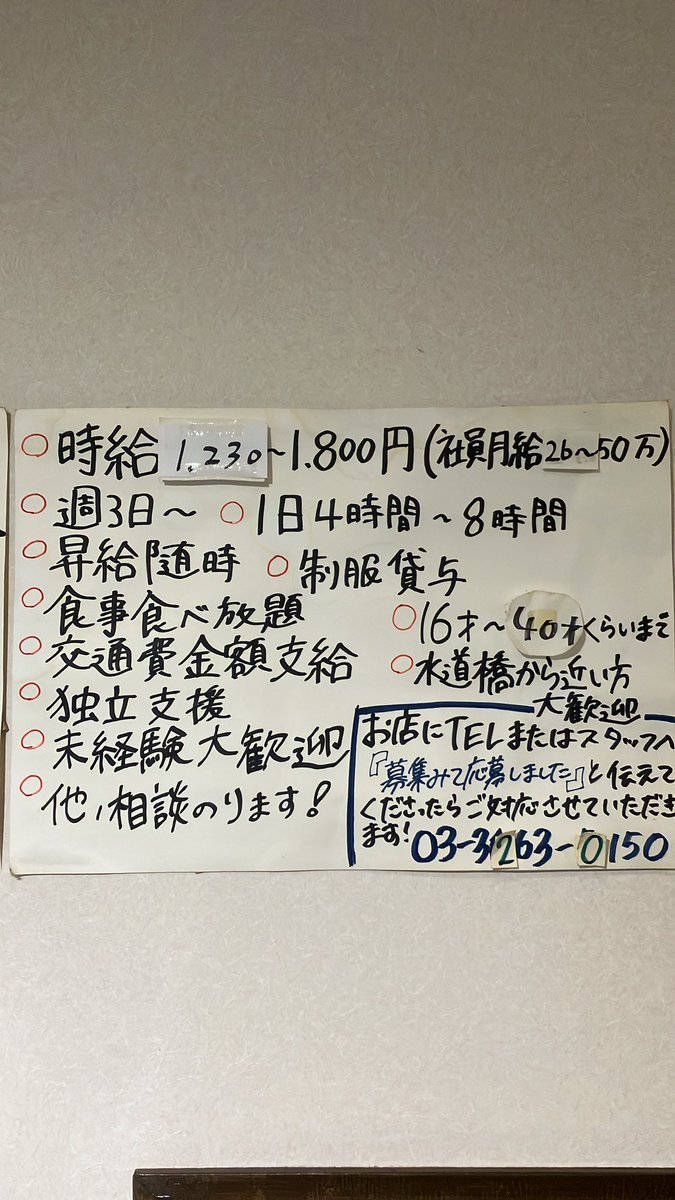 ○時給 1.230〜1.800円(社員月給26〜50万)
○週3日〜 ○1日4時間〜8時間
○昇給随時 ○制服貸与
○食事食べ放題
○16才〜40才くらいまで
○交通費金額支給
○水道橋から近い方
大歓迎
○独立支援
○未経験大歓迎
○他、相談のります!
お店にTELまたはスタッフへ
『募集みて応募しました』と伝えて
くださったらご対応させていただき
ます!
03-3263-0150